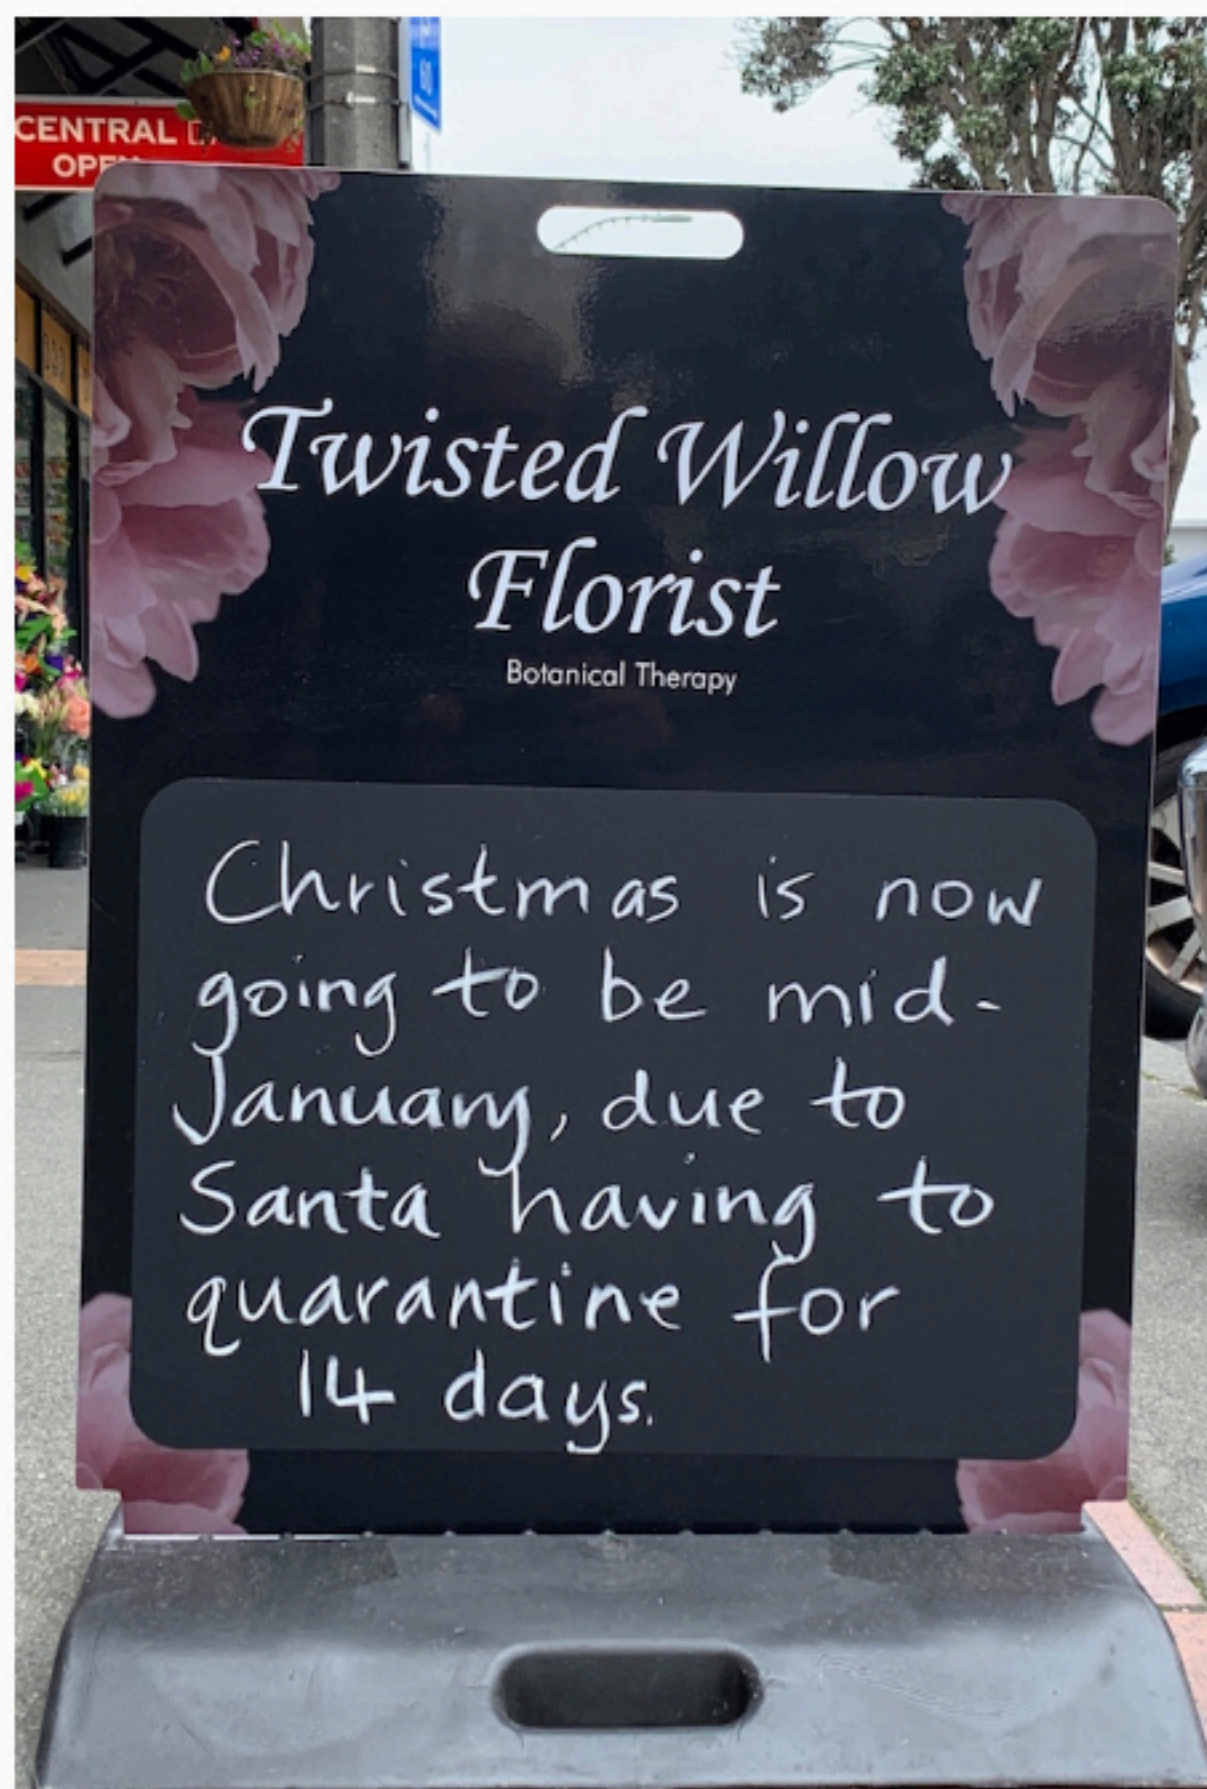 CENTRAL
OPEN
60
Twisted Willow
Florist
Botanical Therapy
Christmas is now
going to be mid-
January, due to
Santa having to
quarantine for
14 days.